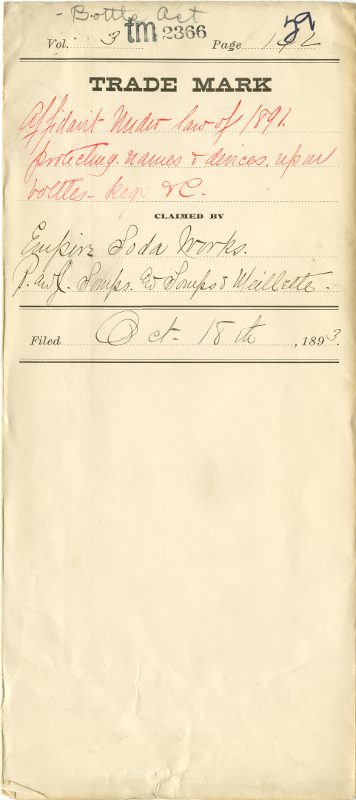 - Bottle Act
Vol. 3 tm 2366 Page 192
TRADE MARK
Affidavit under law of 1891.
protecting names & devices, upon
bottles - kegs &C.
CLAIMED BY
Empire Soda Works.
P. and J. Somps. & Weillette.
Filed Oct. 18th, 1893.